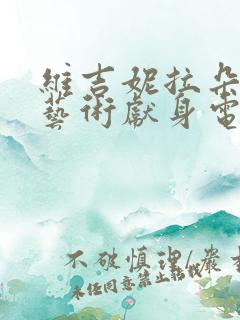 維吉妮拉朵
藝術獻身電
不破慎理/嚴
未經同意禁止轉載